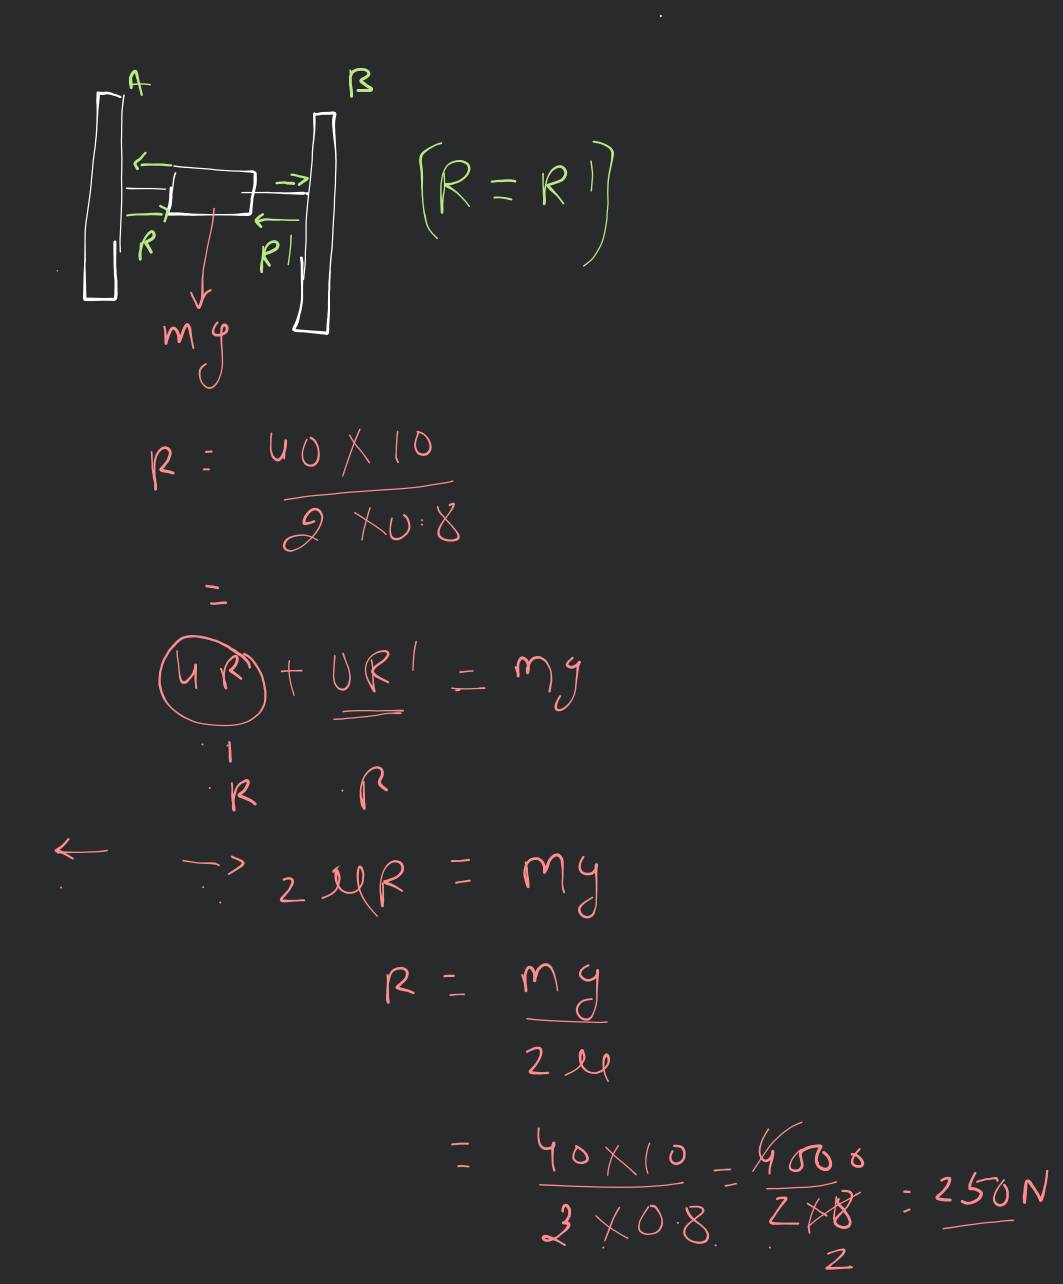 A B
R R'
[R = R']
mg
R = 40 × 10 / 2 × 0.8
=
μR + μR' = mg
R R
← → 2 μR = mg
R = mg / 2 μ
= 40×10 / 2 × 0.8 = 4000 / 2×8 = 250 N
2